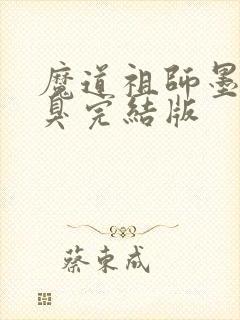 魔道祖師墨
臭完結版
蔡東成